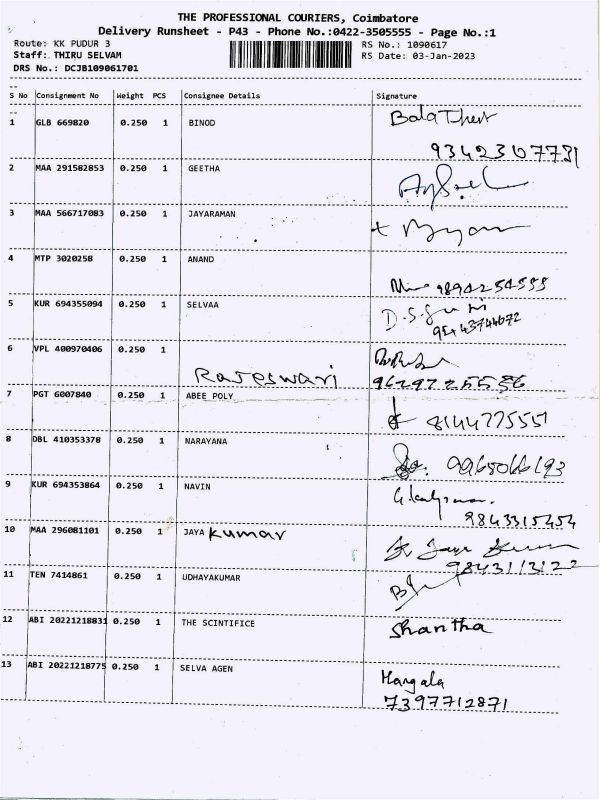 THE PROFESSIONAL COURIERS, Coimbatore
Delivery Runsheet - P43 - Phone No.:0422-3505555 - Page No.:1
Route: KK PUDUR 3 RS No.: 1090617
Staff: THIRU SELVAM RS Date: 03-Jan-2023
DRS No.: DCJB109061701
S No Consignment No Weight PCS Consignee Details Signature
1 GLB 669820 0.250 1 BINOD
9342307731
2 MAA 291582853 0.250 1 GEETHA
3 MAA 566717083 0.250 1 JAYARAMAN
4 MTP 3020258 0.250 1 ANAND
9894254555
5 KUR 694355094 0.250 1 SELVAA
6 VPL 400970406 0.250 1
Rajeswari
7 PGT 6007840 0.250 1 ABEE POLY
8144775551
8 DBL 410353378 0.250 1 NARAYANA
9965066193
9 KUR 694353864 0.250 1 NAVIN
9843315454
10 MAA 296081101 0.250 1 JAYA Kumar
9843113122
11 TEN 7414861 0.250 1 UDHAYAKUMAR
12 ABI 20221218831 0.250 1 THE SCINTIFICE Shantha
13 ABI 20221218775 0.250 1 SELVA AGEN Mangala
7397712871